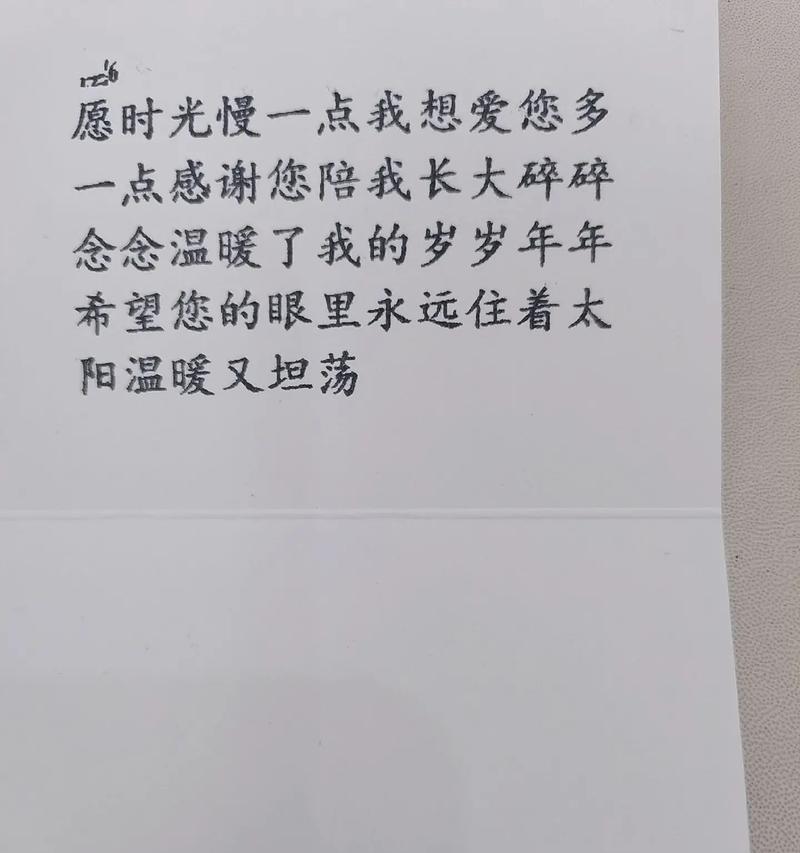 愿时光慢一点我想爱您多
一点感谢您陪我长大碎碎
念念温暖了我的岁岁年年
希望您的眼里永远住着太
阳温暖又坦荡